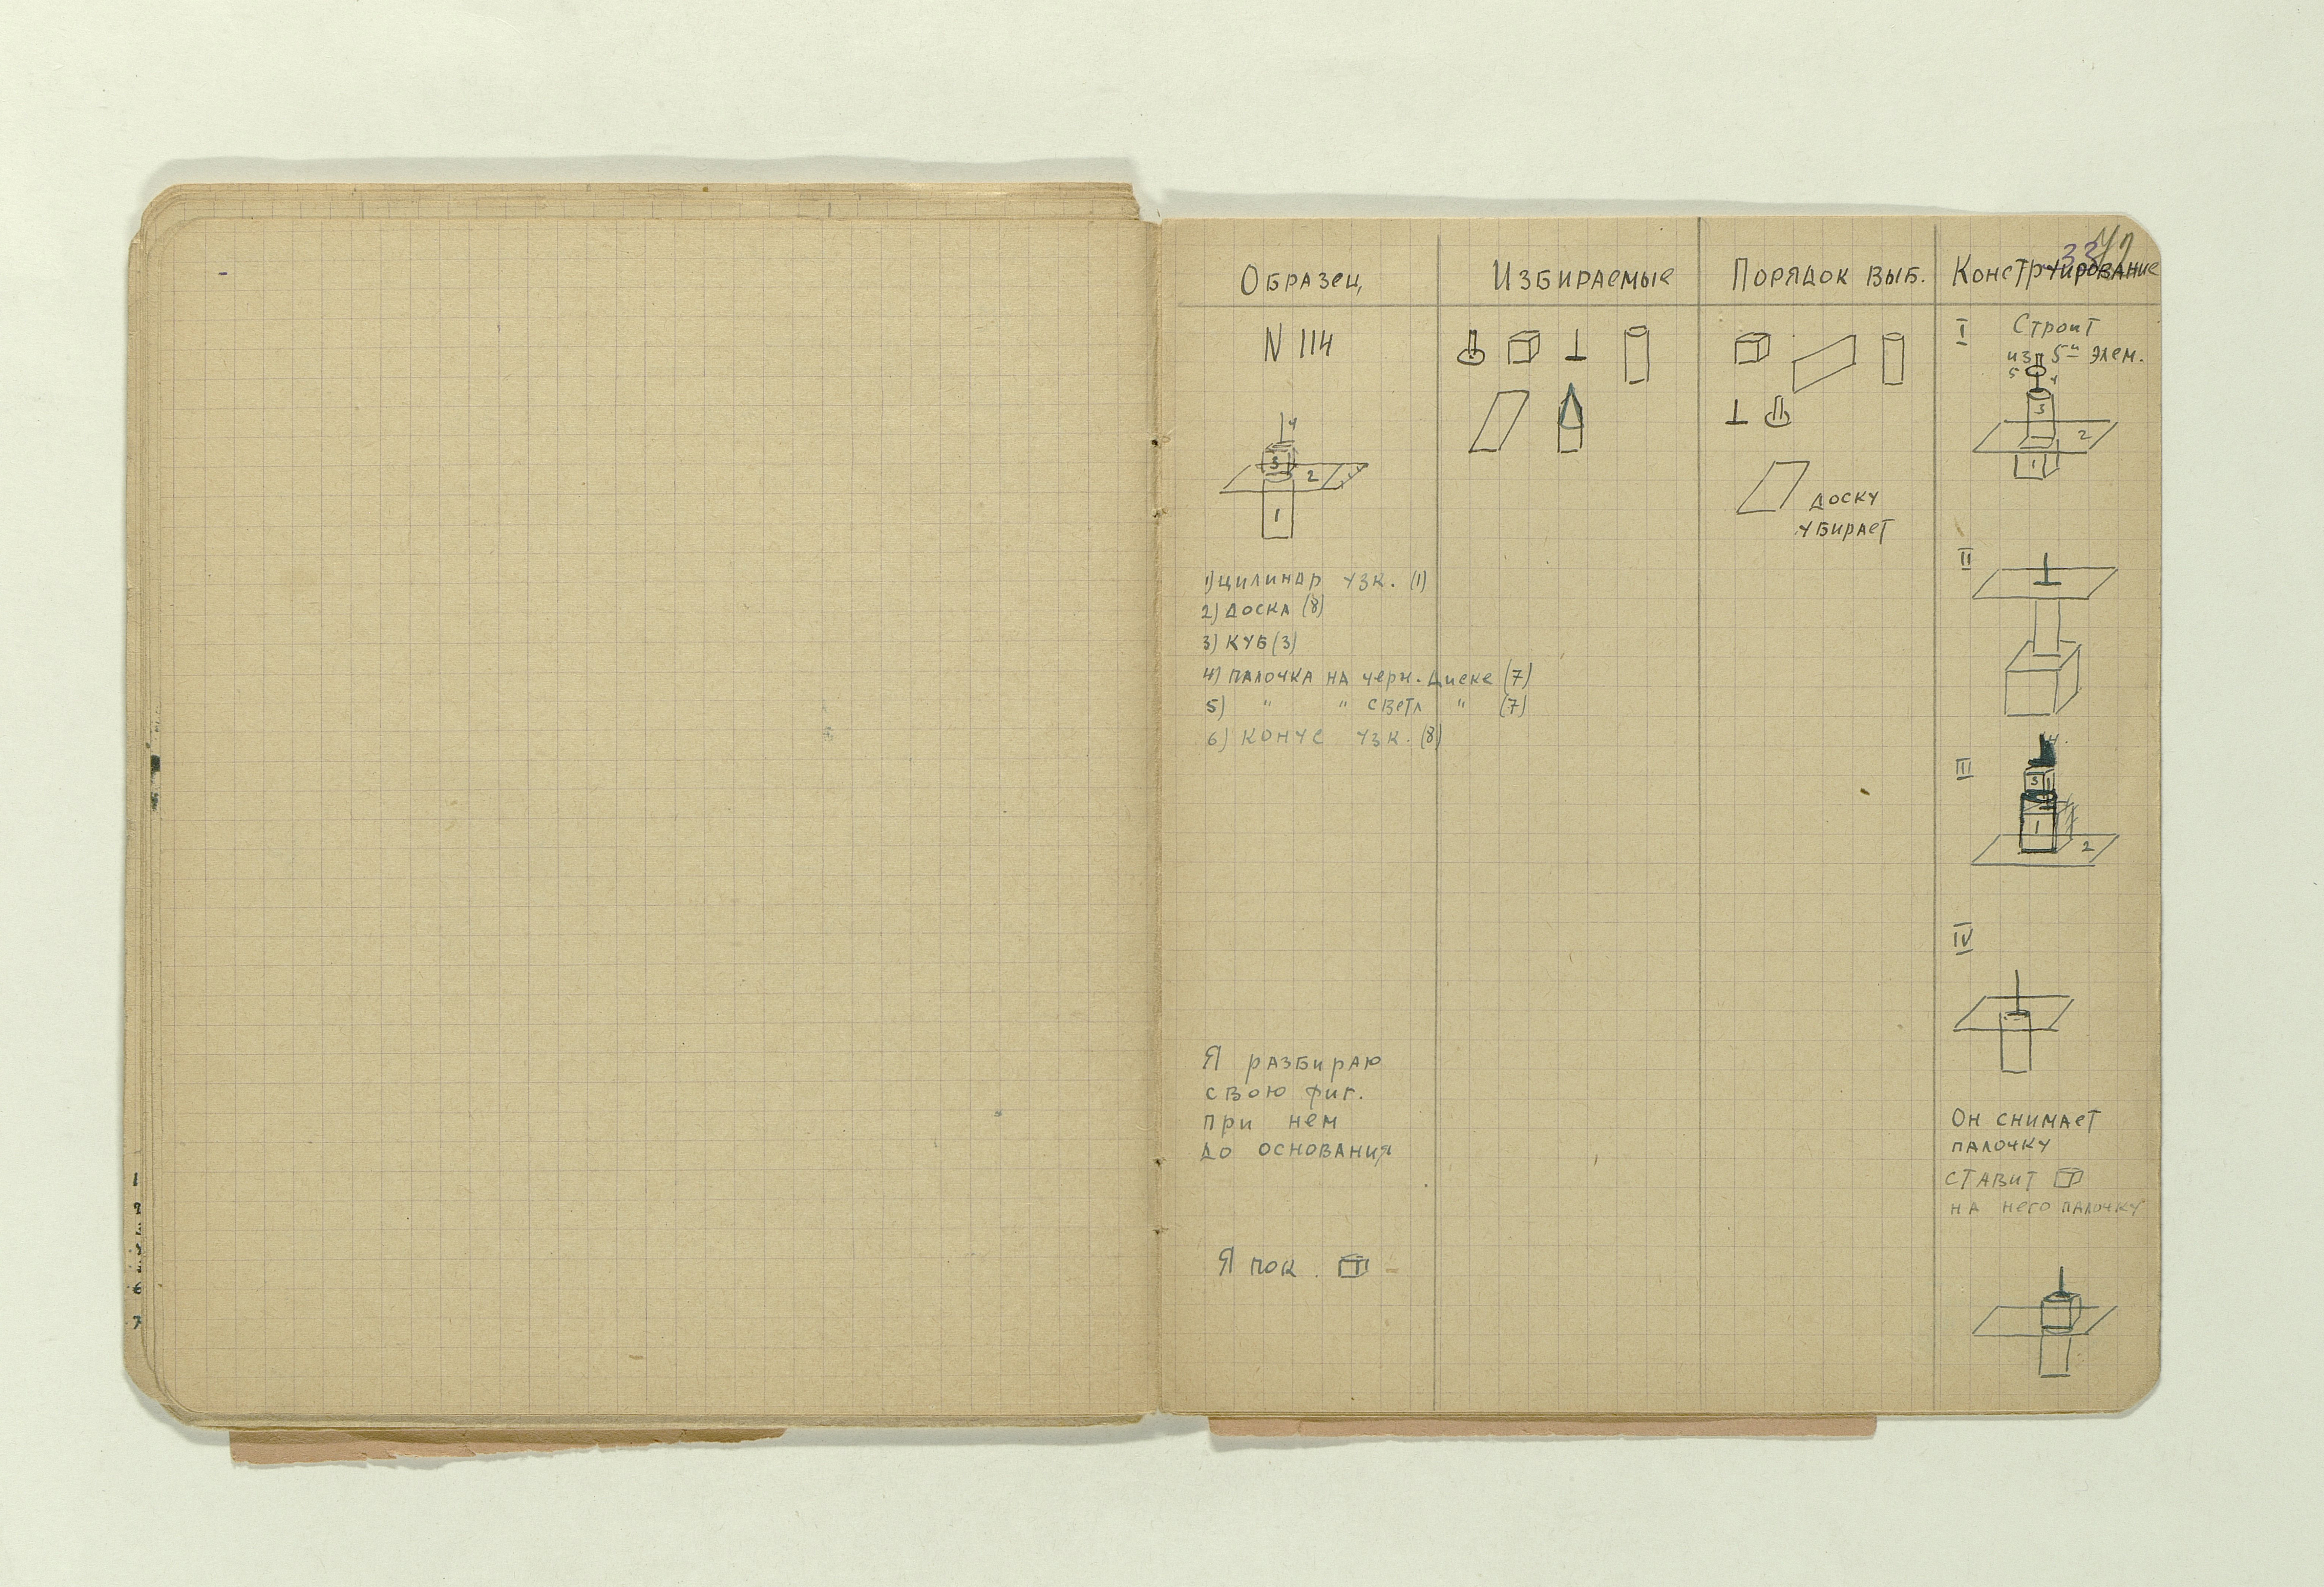 Образец
N 114
4
3
2
1
1) цилиндр узк. (1)
2) доска (8)
3) куб (3)
4) палочка на черн. диске (7)
5) " " светл " (7)
6) конус узк. (8)
Я разбираю
свою фиг.
при нем
до основания
Я пок.
Избираемые
Порядок выб.
доску
убирает
33
Конструирование
I Строит
из 5и элем.
5 4
3
2
1
II
III
4.
3
1
2
IV
Он снимает
палочку
ставит
на него палочку